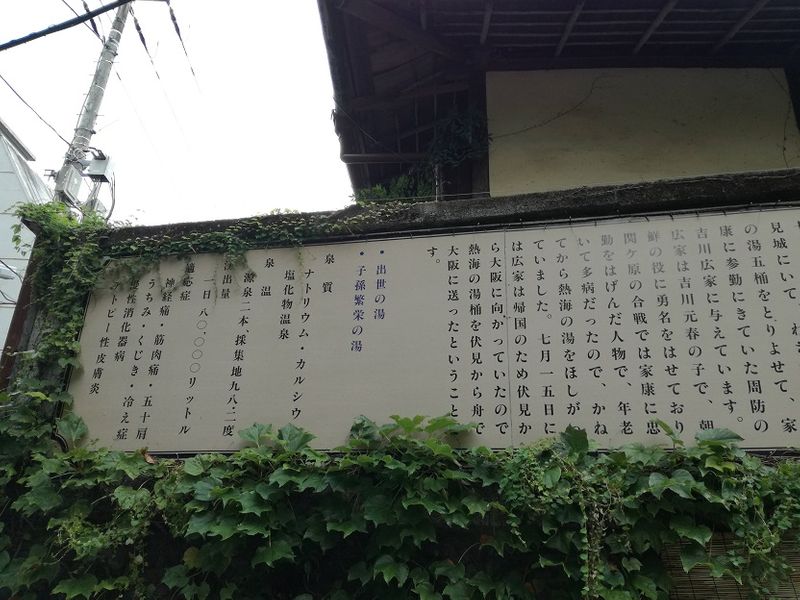 見城にいて、ねき
の湯五桶をとりよせて、家
康に参勤にきていた周防の
吉川広家に与えています。
広家は吉川元春の子で、朝
鮮の役に勇名をはせており
関ケ原の合戦では家康に忠
勤をはげんだ人物で、年老
いて多病だったので、かね
てから熱海の湯をほしが
ていました。七月一五日に
は広家は帰国のため伏見か
ら大阪に向かっていたので
熱海の湯桶を伏見から舟で
大阪に送ったということ
す。
・出世の湯
・子孫繁栄の湯
泉質
ナトリウム・カルシウ
塩化物温泉
泉温
源泉二本、採集地九八・二度
湧出量
一日八〇、〇〇〇リットル
適応症
神経痛・筋肉痛・五十肩
うちみ・くじき・冷え症
慢性消化器病
アトピー性皮膚炎